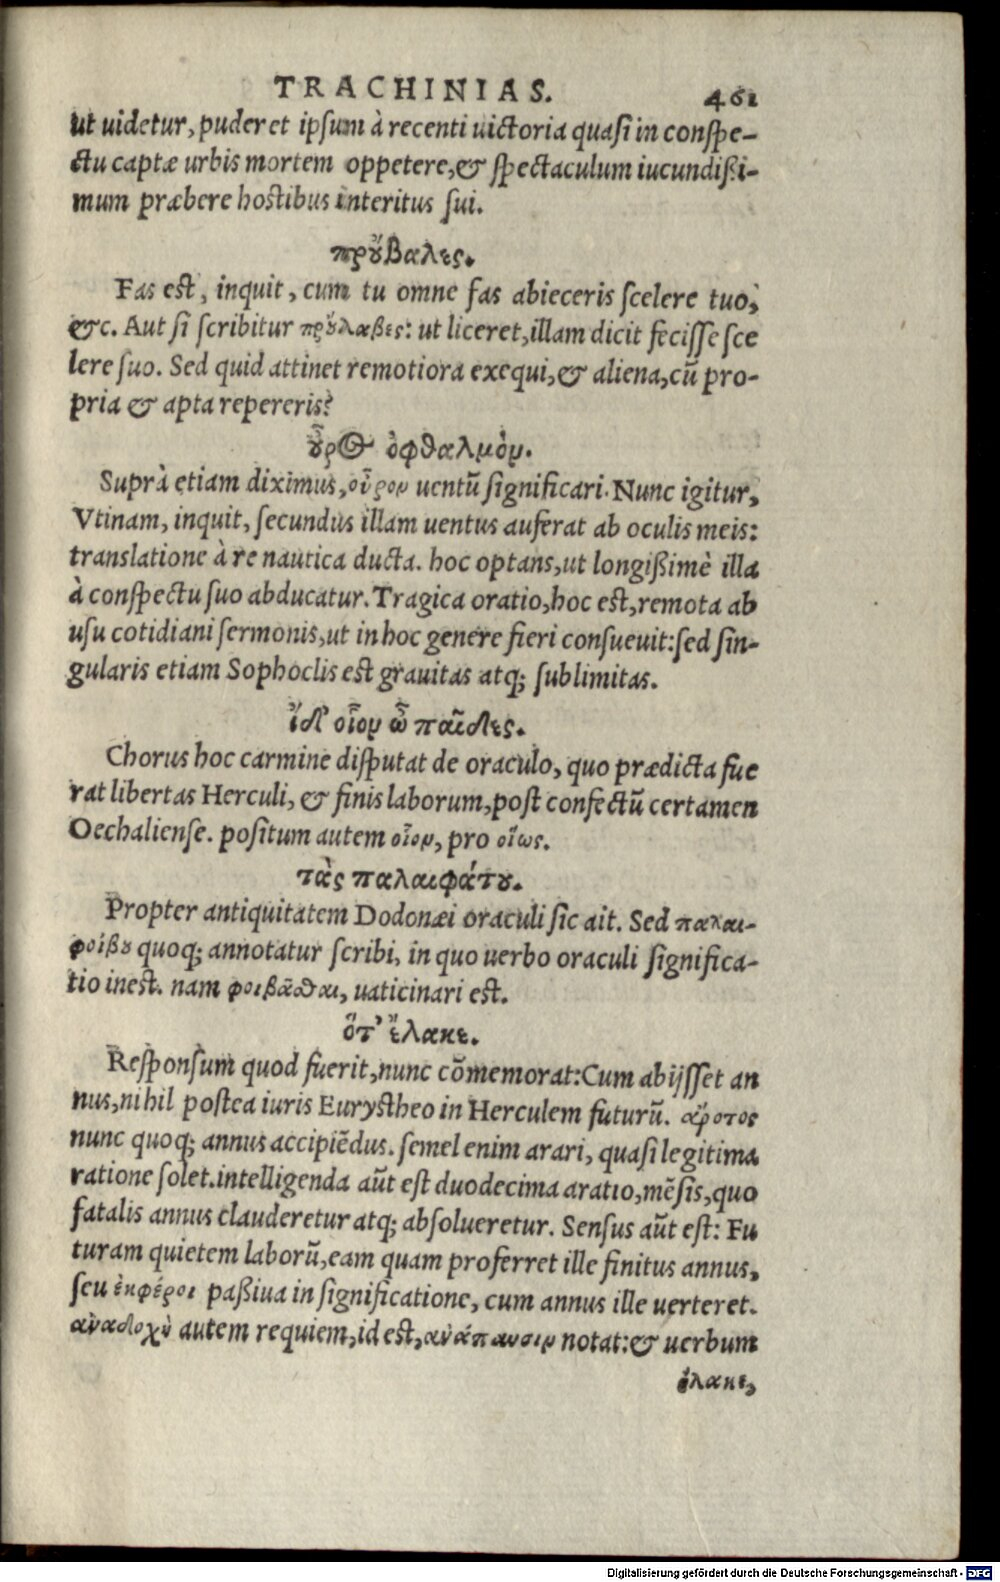 TRACHINIAS. 461
ut uidetur, puderet ipsum à recenti uictoria quasi in conspe-
ctu captæ urbis mortem oppetere, & spectaculum iucundißi-
mum præbere hostibus interitus sui.
πρὔβαλες.
Fas est, inquit, cum tu omne fas abieceris scelere tuo,
&c. Aut si scribitur πρὔλαβες: ut liceret, illam dicit fecisse sce
lere suo. Sed quid attinet remotiora exequi, & aliena, cū pro-
pria & apta repereris?
οὖρος ὀφθαλμὸν.
Suprà etiam diximus, οὖρον uentū significari. Nunc igitur,
Vtinam, inquit, secundus illam uentus auferat ab oculis meis:
translatione à re nautica ducta. hoc optans, ut longißimè illa
à conspectu suo abducatur. Tragica oratio, hoc est, remota ab
usu cotidiani sermonis, ut in hoc genere fieri consueuit: sed sin-
gularis etiam Sophoclis est grauitas atq; sublimitas.
ἴδ' οἷον ὦ παῖδες.
Chorus hoc carmine disputat de oraculo, quo prædicta fue
rat libertas Herculi, & finis laborum, post confectū certamen
Oechaliense. positum autem οἷον, pro οἵως.
τᾶς παλαιφάτου.
Propter antiquitatem Dodonæi oraculi sic ait. Sed παλαι-
φοίβου quoq; annotatur scribi, in quo uerbo oraculi significa-
tio inest. nam φοιβᾶσθαι, uaticinari est.
ὅτ' ἔλακε.
Responsum quod fuerit, nunc cōmemorat: Cum abijsset an
nus, nihil postea iuris Eurystheo in Herculem futurū. ἄροτος
nunc quoq; annus accipiēdus. semel enim arari, quasi legitima
ratione solet. intelligenda aūt est duodecima aratio, mēsis, quo
fatalis annus clauderetur atq; absolueretur. Sensus aūt est: Fu
turam quietem laborū, eam quam proferret ille finitus annus,
seu ἐκφέροι paßiua in significatione, cum annus ille uerteret.
ἀναδοχὴ autem requiem, id est, ἀνάπαυσιν notat: & uerbum
ἔλακε,
Digitalisierung gefördert durch die Deutsche Forschungsgemeinschaft - DFG